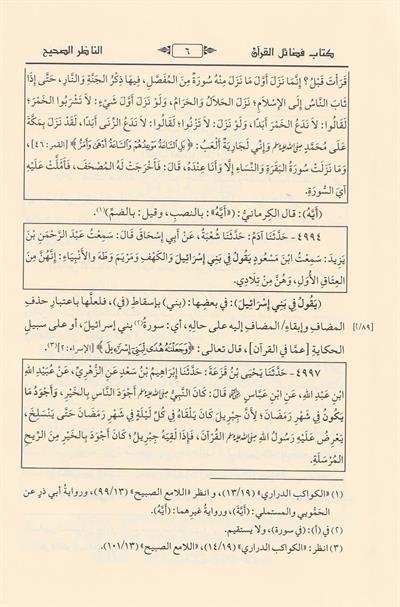 كتاب فضائل القرآن ٦ الناظر الصحيح
قَرَأتَ قَبْلُ؟ إِنَّمَا نَزَلَ أَوَّلَ مَا نَزَلَ مِنْهُ سُورَةٌ مِنَ المُفَصَّلِ، فِيهَا ذِكْرُ الجَنَّةِ وَالنَّارِ، حَتَّى إِذَا
ثَابَ النَّاسُ إِلَى الإِسْلَامِ؛ نَزَلَ الحَلَالُ وَالحَرَامُ، وَلَوْ نَزَلَ أَوَّلَ شَيْءٍ: لَا تَشْرَبُوا الخَمْرَ؛
لَقَالُوا: لَا نَدَعُ الخَمْرَ أَبَدًا، وَلَوْ نَزَلَ: لَا تَزْنُوا؛ لَقَالُوا: لَا نَدَعُ الزِّنَى أَبَدًا، لَقَدْ نَزَلَ بِمَكَّةَ
عَلَى مُحَمَّدٍ صلى الله عليه وسلم وَإِنِّي لَجَارِيَةٌ أَلْعَبُ: ﴿بَلِ السَّاعَةُ مَوْعِدُهُمْ وَالسَّاعَةُ أَدْهَى وَأَمَرُّ﴾ [القمر: ٤٦]،
وَمَا نَزَلَتْ سُورَةُ البَقَرَةِ وَالنِّسَاءِ إِلَّا وَأَنَا عِنْدَهُ، قَالَ: فَأَخْرَجَتْ لَهُ المُصْحَفَ، فَأَمْلَتْ عَلَيْهِ
آيَ السُّورَةِ.
(أَيَّهُ): قال الكِرمانيُّ: («أَيَّهُ»: بالنصبِ، وقيل: بالضمِّ)(١).
٤٩٩٤ - حَدَّثَنَا آدَمُ: حَدَّثَنَا شُعْبَةُ، عَنْ أَبِي إِسْحَاقَ قَالَ: سَمِعْتُ عَبْدَ الرَّحْمَنِ بْنَ
يَزِيدَ: سَمِعْتُ ابْنَ مَسْعُودٍ يَقُولُ فِي بَنِي إِسْرَائِيلَ وَالكَهْفِ وَمَرْيَمَ وَطَهَ وَالأَنْبِيَاءِ: إِنَّهُنَّ مِنَ
العِتَاقِ الأُوَلِ، وَهُنَّ مِنْ تِلَادِي.
(يَقُولُ فِي بَنِي إِسْرَائِيلَ): في بعضِها: (بني) بإسقاطِ (في)، فلعلَّها باعتبارِ حذفِ
المضافِ وإبقاءِ/ المضافِ إليه على حالِهِ، أي: سورةُ(٢) بني إسرائيلَ، أو على سبيلِ [٨٩/أ]
الحكايةِ [عمَّا في القرآن]، قال تعالى: ﴿وَجَعَلْنَاهُ هُدًى لِبَنِي إِسْرَائِيلَ﴾ [الإسراء: ٢](٣).
٤٩٩٧ - حَدَّثَنَا يَحْيَى بْنُ قَزَعَةَ: حَدَّثَنَا إِبْرَاهِيمُ بْنُ سَعْدٍ عَنِ الزُّهْرِيِّ، عَنْ عُبَيْدِ اللهِ
ابْنِ عَبْدِ اللهِ، عَنِ ابْنِ عَبَّاسٍ قَالَ: كَانَ النَّبِيُّ صلى الله عليه وسلم أَجْوَدَ النَّاسِ بِالخَيْرِ، وَأَجْوَدُ مَا
يَكُونُ فِي شَهْرِ رَمَضَانَ؛ لِأَنَّ جِبْرِيلَ كَانَ يَلْقَاهُ فِي كُلِّ لَيْلَةٍ فِي شَهْرِ رَمَضَانَ حَتَّى يَنْسَلِخَ،
يَعْرِضُ عَلَيْهِ رَسُولُ اللهِ صلى الله عليه وسلم القُرْآنَ، فَإِذَا لَقِيَهُ جِبْرِيلُ؛ كَانَ أَجْوَدَ بِالخَيْرِ مِنَ الرِّيحِ
المُرْسَلَةِ.
(١) «الكواكب الدراري» (١٣/١٩)، و انظر «اللامع الصبيح» (٩٩/١٣)، وروايةُ أبي ذرٍ عن
الحَمُّوييِ والمستملي: (أَيَّةَ)، وروايةُ غيرِهما: (أَيَّهُ).
(٢) في (أ): (في سورة)، ولا يستقيم.
(٣) انظر: «الكواكب الدراري» (١٤/١٩)، «اللامع الصبيح» (١٠١/١٣).